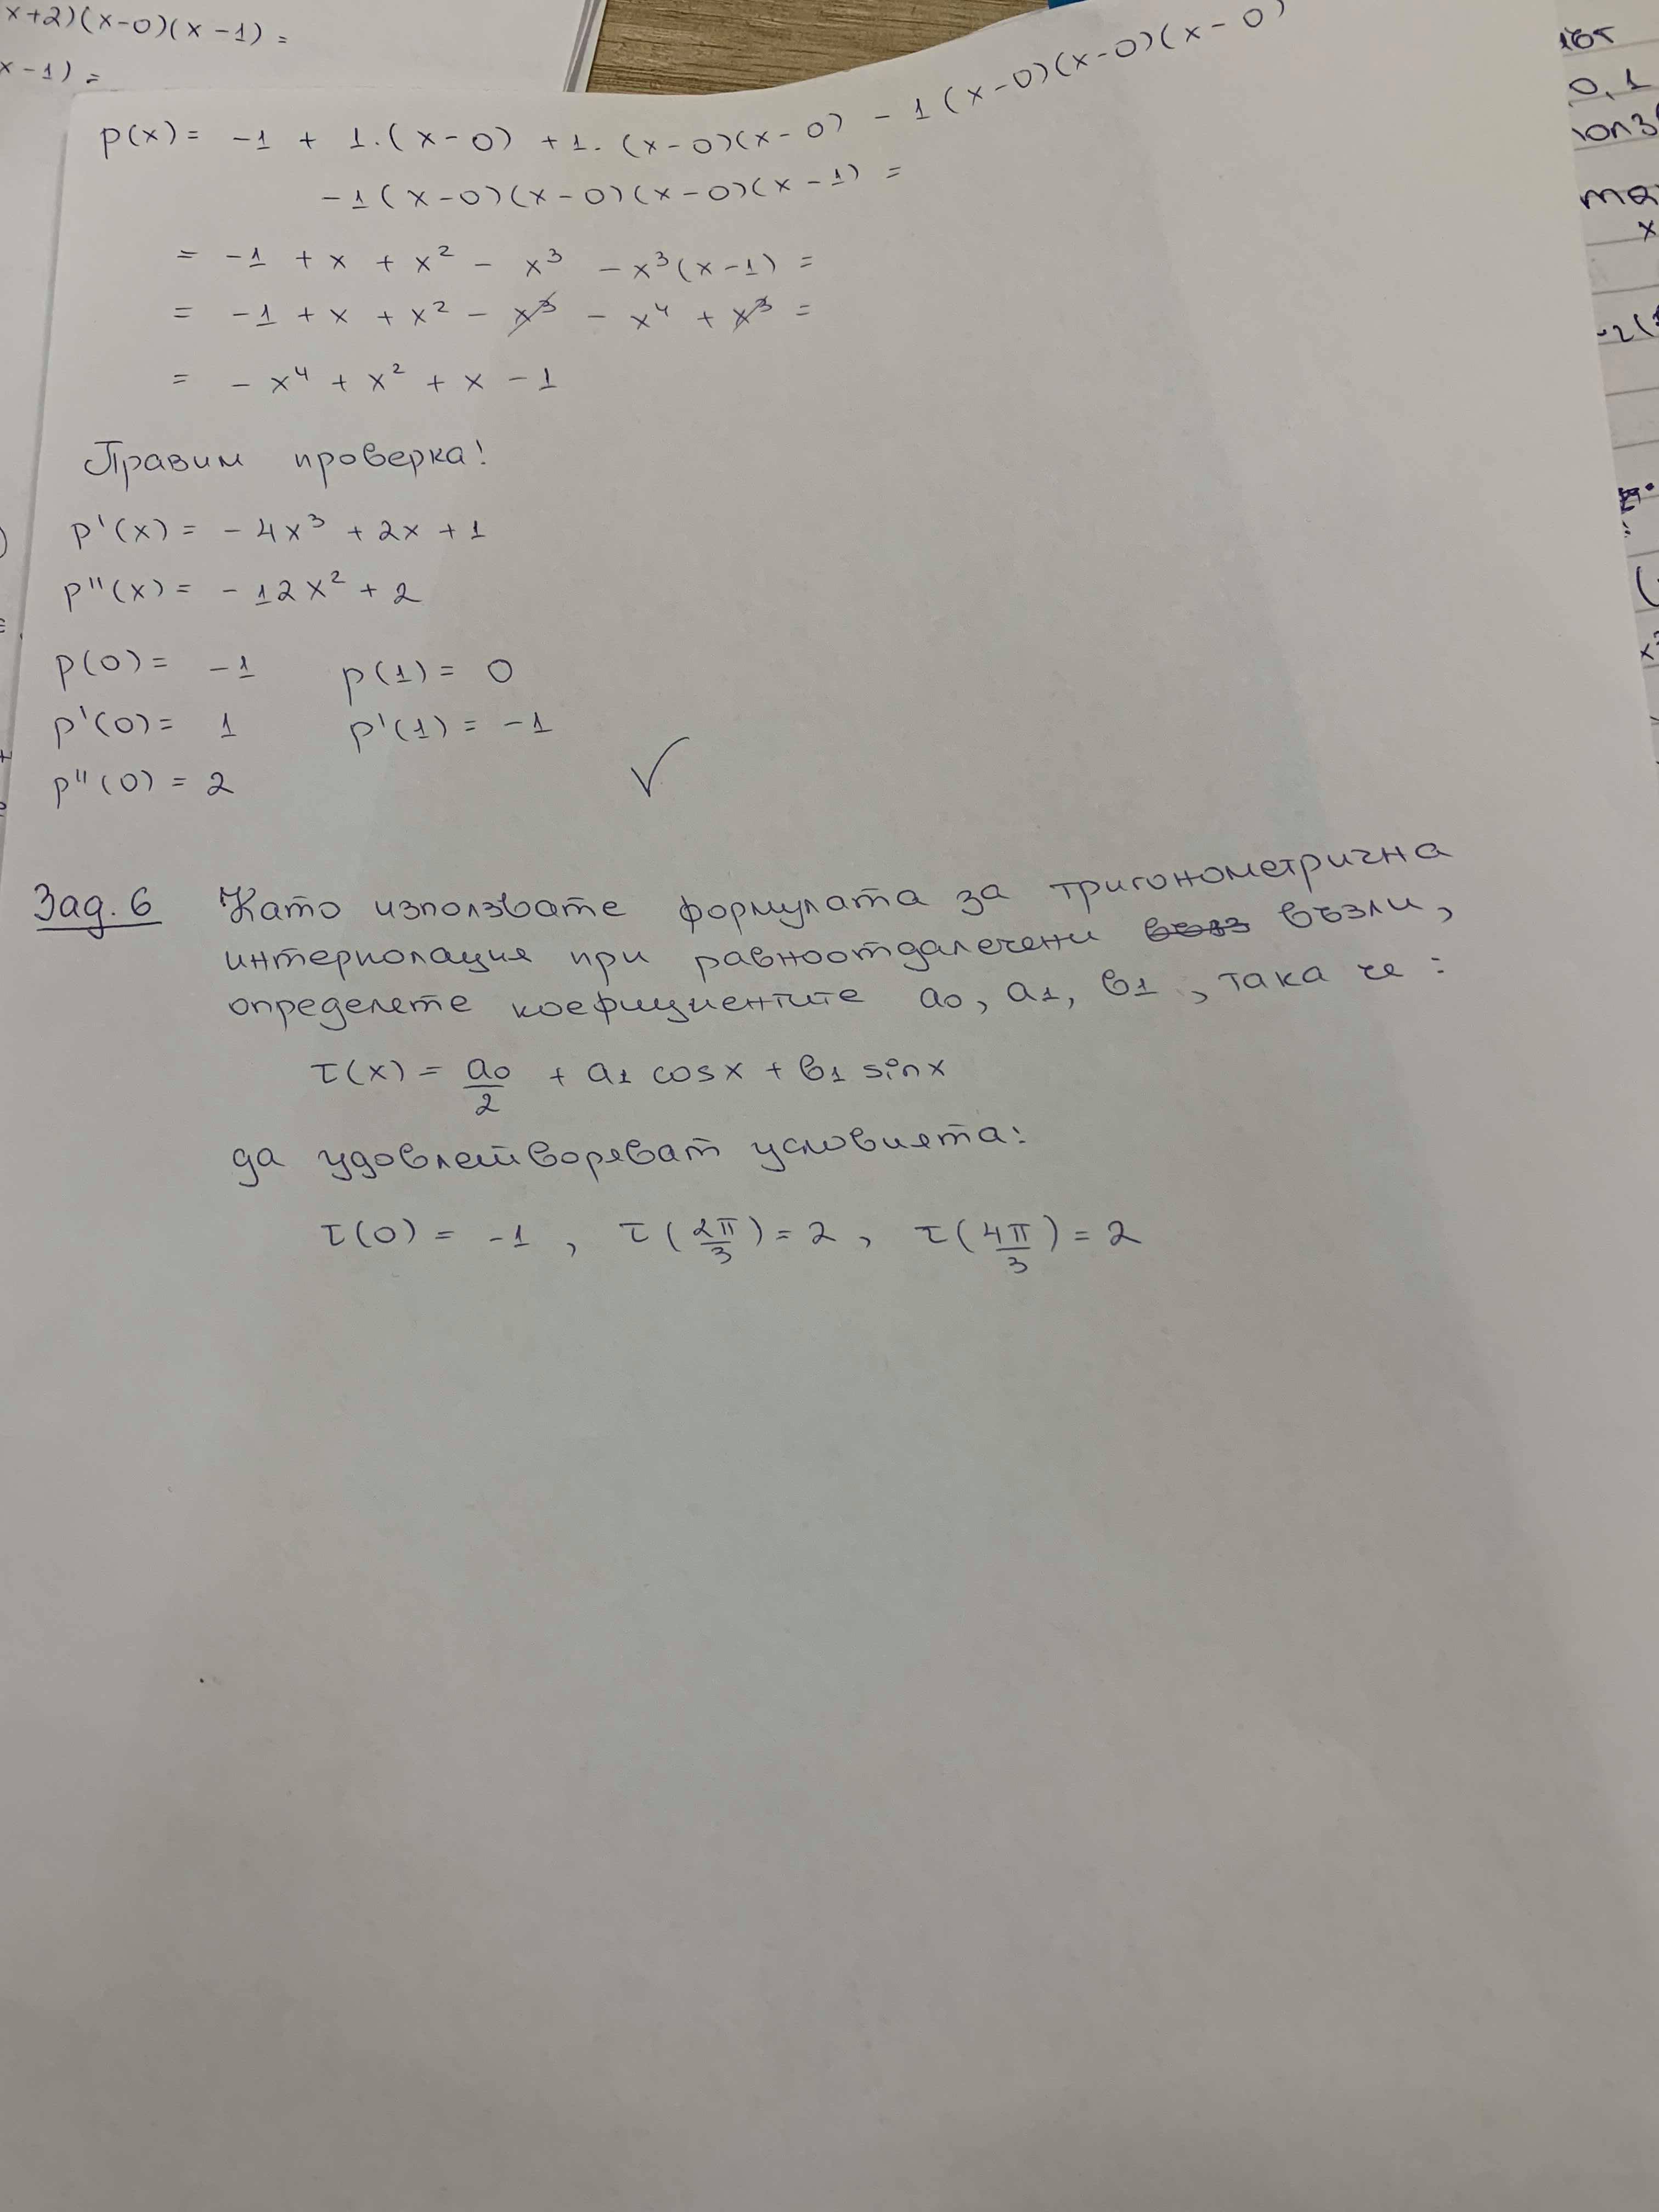 x+2)(x-0)(x-1) =
x-1) =
p(x) = -1 + 1.(x-0) + 1.(x-0)(x-0) - 1(x-0)(x-0)(x-0)
-1(x-0)(x-0)(x-0)(x-1) =
= -1 + x + x² - x³ - x³(x-1) =
= -1 + x + x² - x³ - x⁴ + x³ =
= -x⁴ + x² + x - 1
Правим проверка!
p'(x) = -4x³ + 2x + 1
p''(x) = -12x² + 2
p(0) = -1 p(1) = 0
p'(0) = 1 p'(1) = -1
p''(0) = 2 ✓
Зад. 6 Като използвате формулата за тригонометрична
интерполация при равноотдалечени възли,
определете коефициентите a₀, a₁, b₁, така че:
τ(x) = a₀/2 + a₁ cosx + b₁ sinx
да удовлетворяват условията:
τ(0) = -1, τ(2π/3) = 2, τ(4π/3) = 2
0, 1